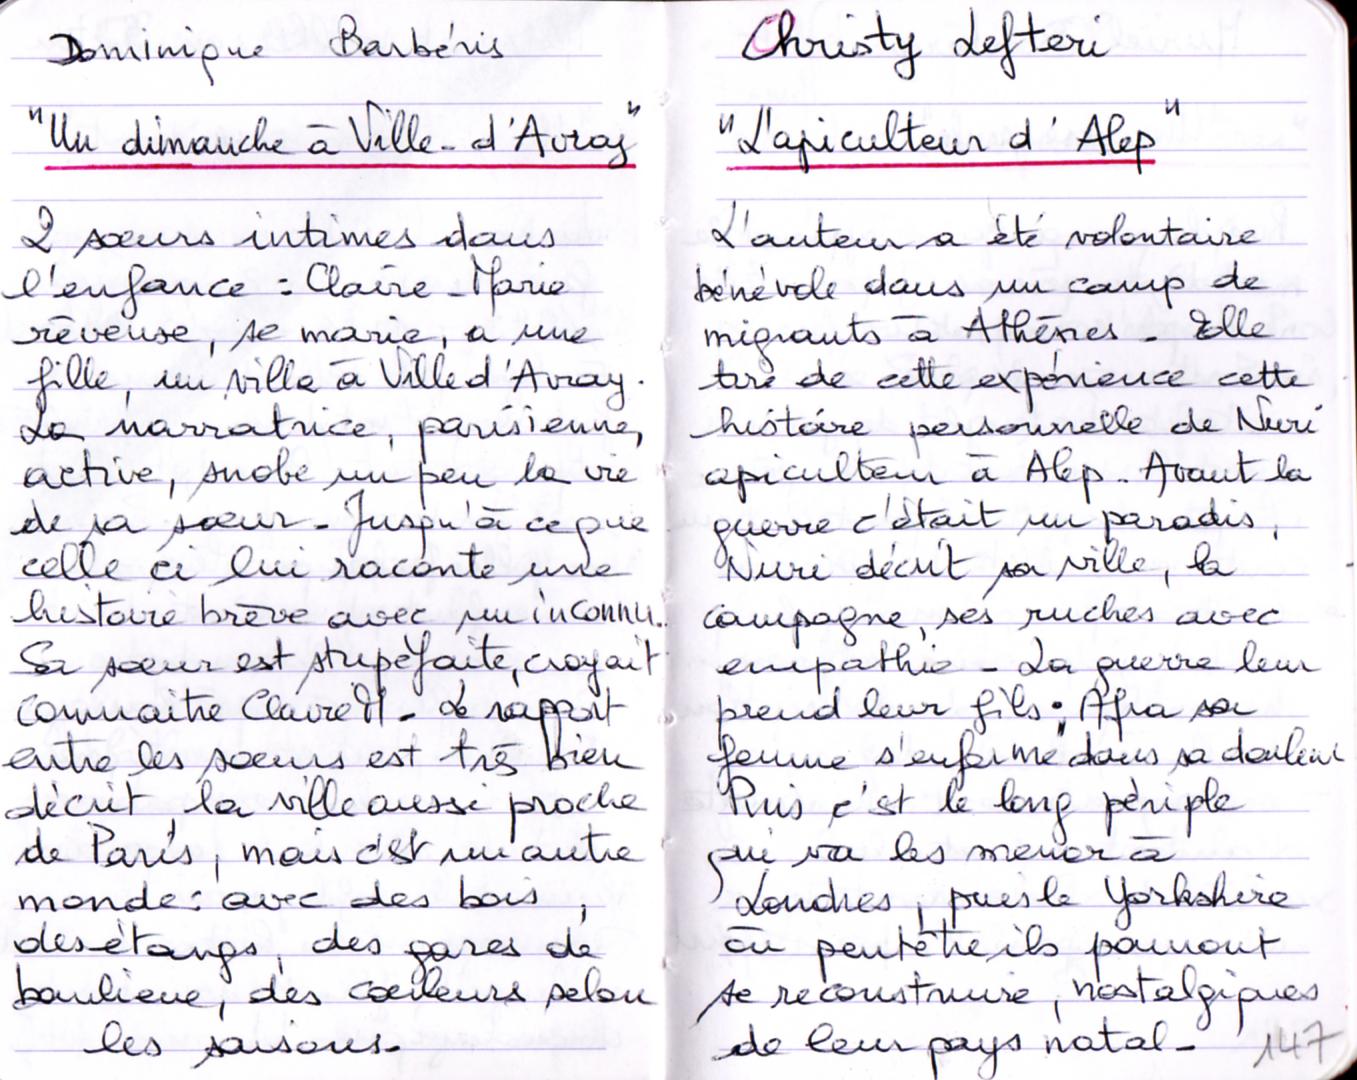 Dominique Barbéris
"Un dimanche à Ville-d'Avray"
2 sœurs intimes dans
l'enfance : Claire-Marie
rêveuse, se marie, a une
fille, un villa à Ville d'Avray.
La narratrice, parisienne,
active, snobe un peu la vie
de sa sœur - Jusqu'à ce que
celle ci lui raconte une
histoire brève avec un inconnu.
Sa sœur est stupéfaite, croyait
connaitre Claire M - Le rapport
entre les sœurs est très bien
décrit, la ville aussi proche
de Paris, mais c'est un autre
monde : avec des bois,
des étangs, des gares de
banlieue, des couleurs selon
les saisons -
Christy Lefteri
"L'apiculteur d'Alep"
L'auteur a été volontaire
bénévole dans un camp de
migrants à Athènes - Elle
tire de cette expérience cette
histoire personnelle de Nuri
apiculteur à Alep. Avant la
guerre c'était un paradis,
Nuri décrit sa ville, la
campagne, ses ruches avec
empathie - La guerre leur
prend leur fils : Afra sa
femme s'enferme dans sa douleur
Puis c'est le long périple
qui va les mener à
Londres, puis le Yorkshire
où peut être ils pourront
se reconstruire, nostalgiques
de leur pays natal -
147